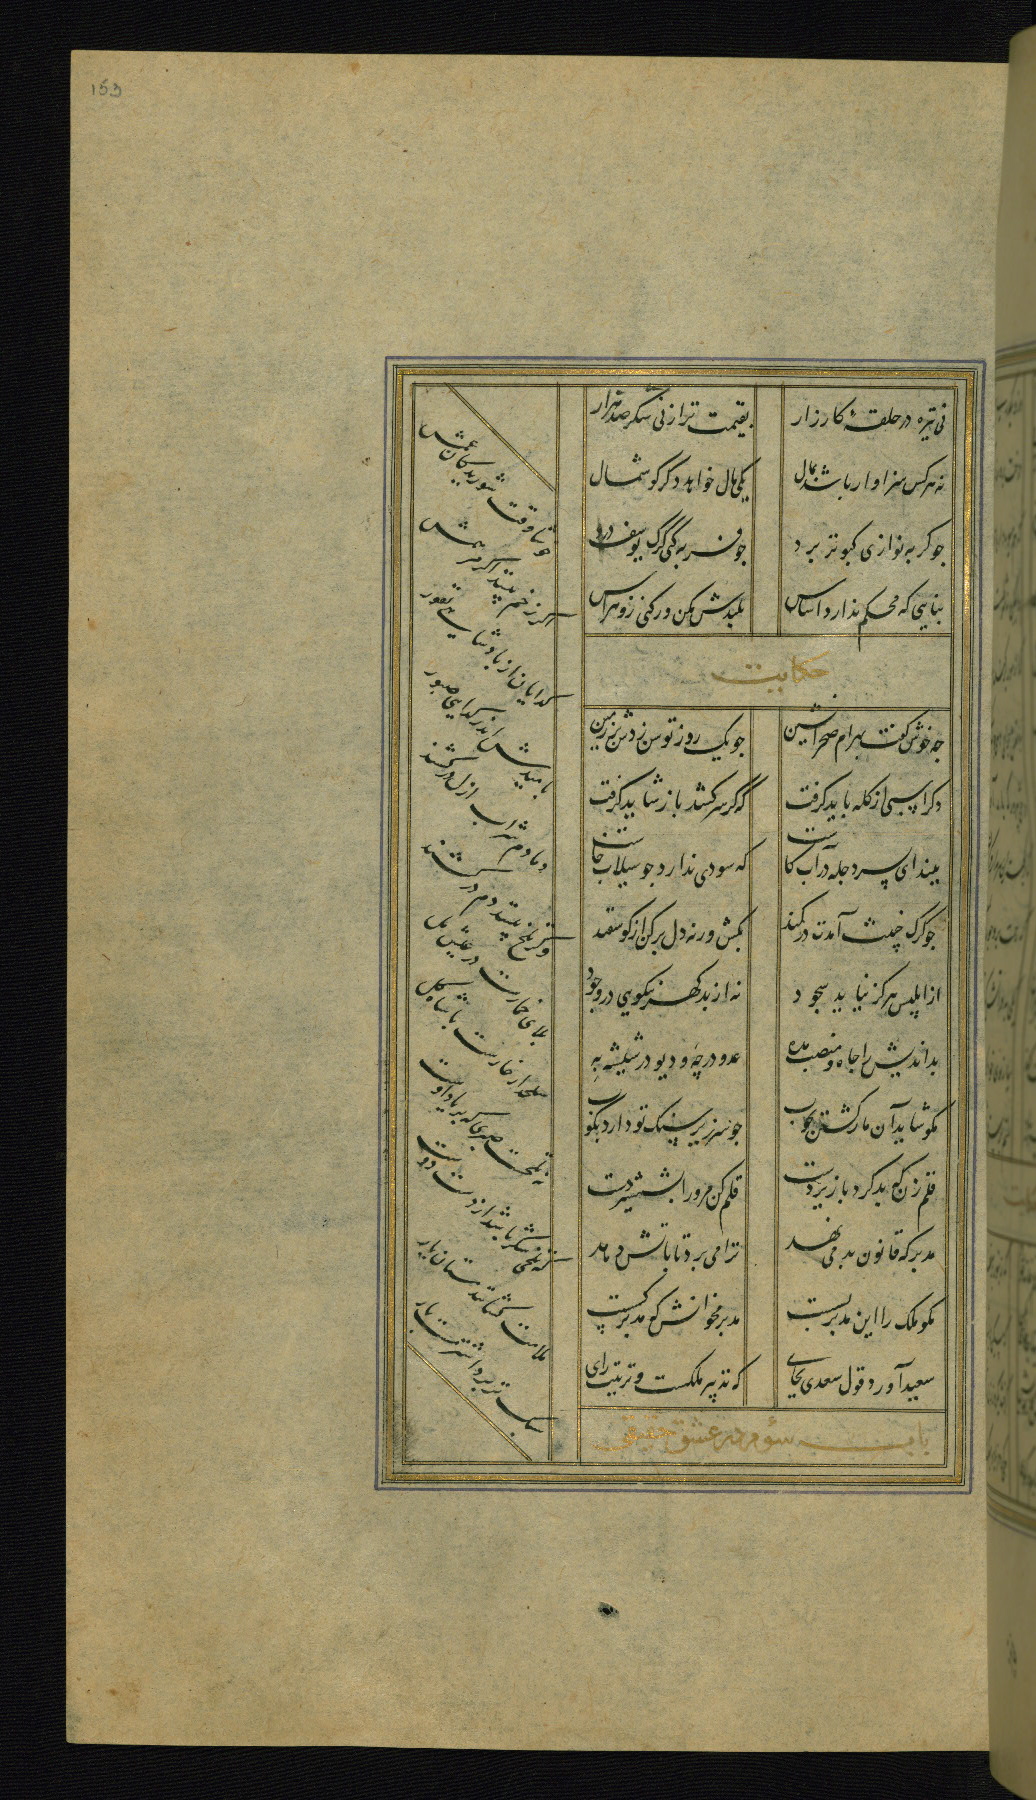 153
نی نیزه در حلقهٔ کارزار
بقیمت تر از نی شکر صد هزار
نه هر کس سزاوار باشد بمال
یکی مال خواهد دگر گوشمال
چو گربه نوازی کبوتر برد
چو فربه کنی گرگ یوسف درد
بنایی که محکم ندارد اساس
بلندش مکن ور کنی زو هراس
حکایت
چه خوش گفت بهرام صحرانشین
چو یک روز توسن زدش بر زمین
دگر اسبی از گله باید گرفت
که گر سر کشد باز شاید گرفت
ببند ای پسر دجله در آب کاست
که سودی ندارد چو سیلاب خاست
چو گرگ خبیث آمدت در کمند
بکش ور نه دل بر کن از گوسفند
از ابلیس هرگز نیاید سجود
نه از بد گهر نیکویی در وجود
بد اندیش را جاه و منصب مده
عدو در چه و دیو در شیشه به
مگو شاید آن مار کشتن بچوب
چو سر زیر سنگ تو دارد بکوب
قلم زن که بد کرد با زیردست
قلم کن مر او را بشمشیر دست
مدبر که قانون بد می نهد
ترا می برد تا بآتش دهد
مگو ملک را این مدبر بست
مدبر مخوانش که مدبر کست
سعید آورد قول سعدی بجای
که تدبیر ملکست و ترتیب رای
باب سوم در عشق حقیقی
خوشا وقت شوریدگان غمش
اگر زخم بینند اگر مرهمش
گدایان از پادشاهی نفور
بامیدش اندر گدایی صبور
دمادم شراب از الم در کشند
وگر تلخ بینند دم در کشند
بلای خمارست در عیش مل
سلحدار خارست با شاه گل
نه تلخست صبری که بر یاد اوست
که تلخی شکر باشد از دست دوست
ملامت کشانند مستان یار
سبک تر برد اشتر مست بار